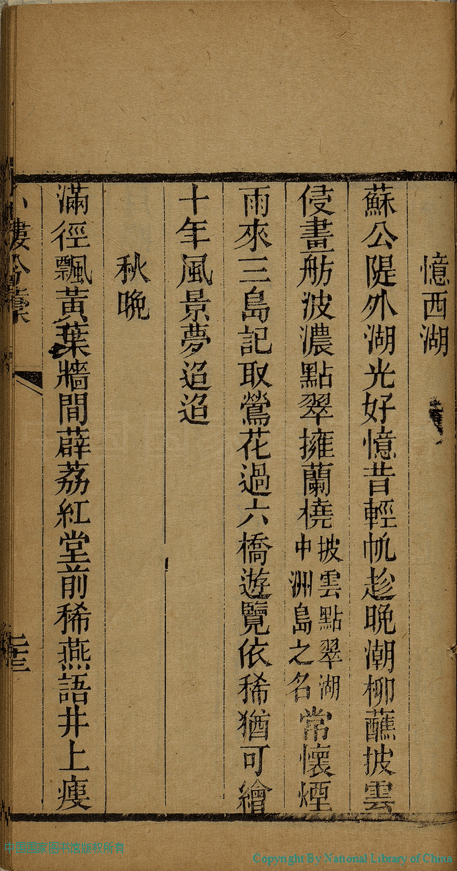 憶西湖
蘇公隄外湖光好憶昔輕帆趁晚潮柳蘸披雲
侵畫舫波濃點翠擁蘭橈披雲點翠湖中洲島之名常懷煙
雨來三島記取鶯花過六橋遊覽依稀猶可繪
十年風景夢迢迢
秋晚
滿徑飄黃葉牆間薜荔紅堂前稀燕語井上瘦
小樓吟藁
Copyright By National Library of China